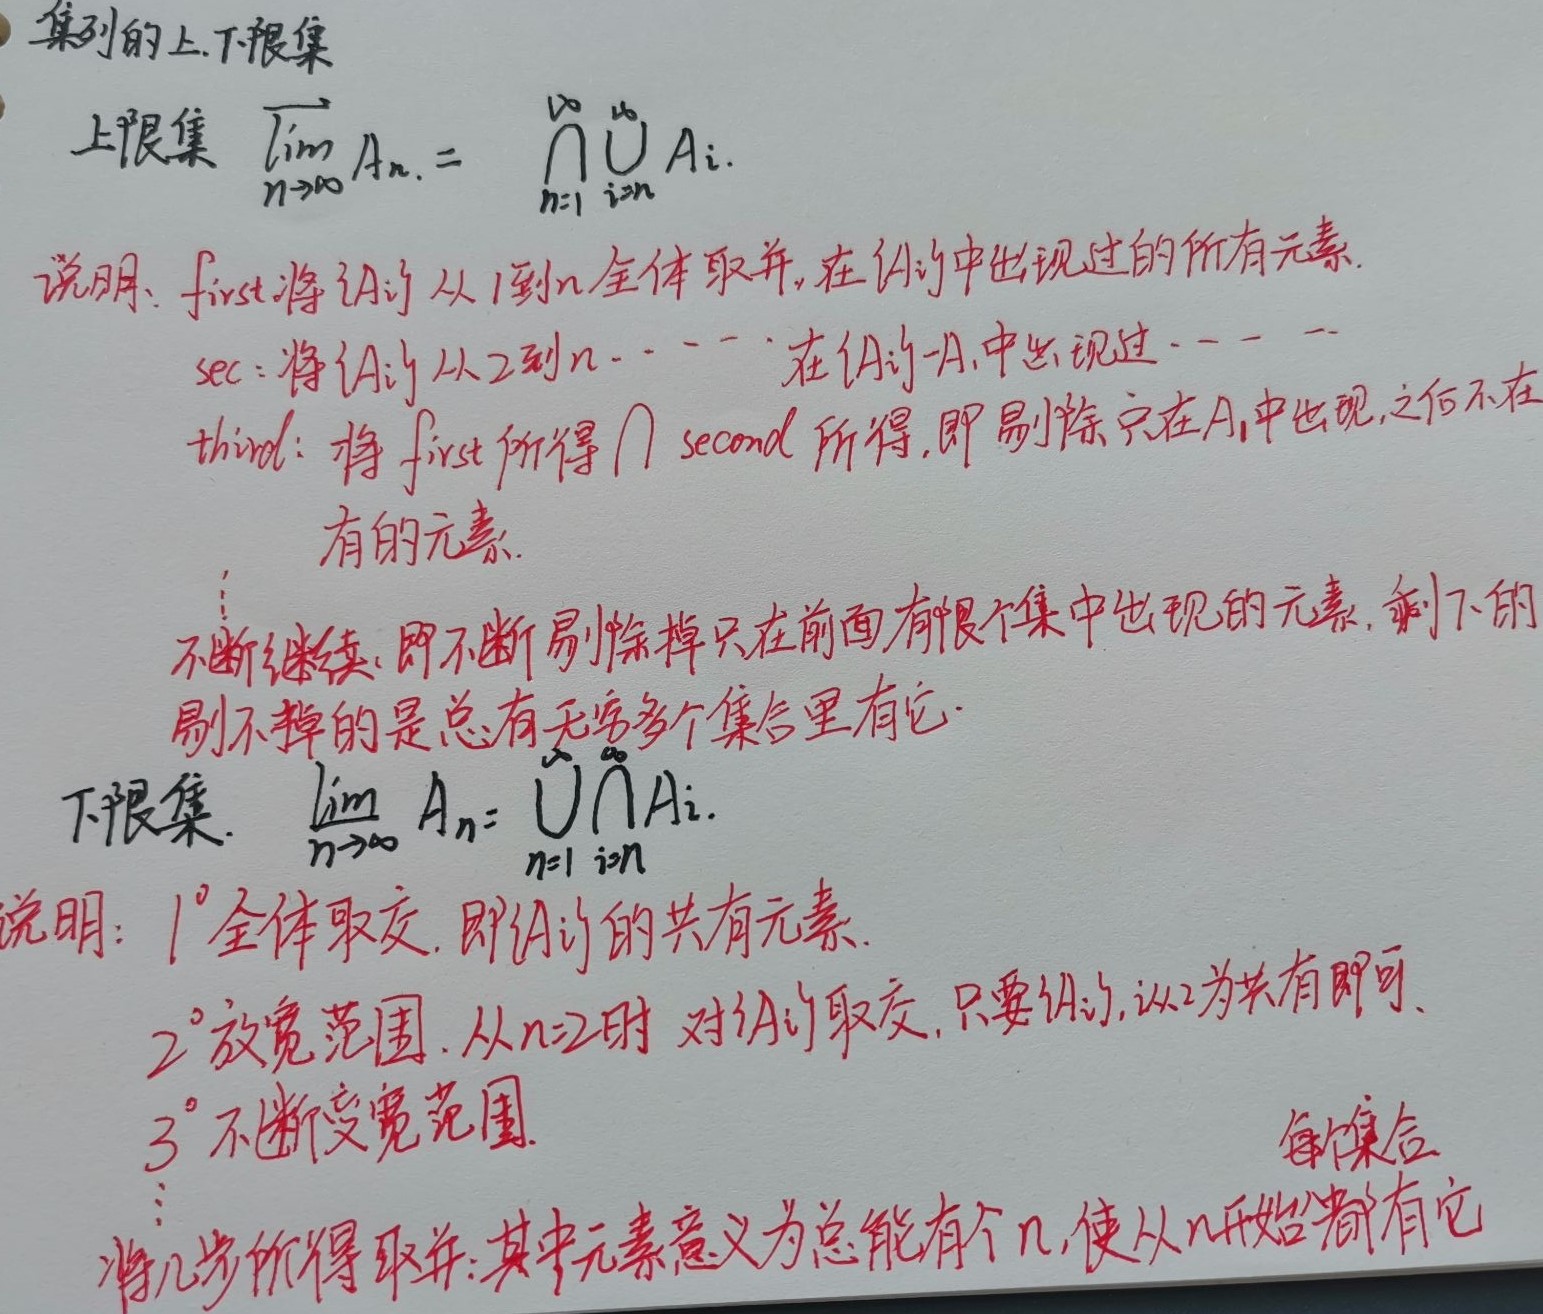 集列的上.下限集
上限集 $\overline{\lim\limits_{n\to\infty}} A_n. = \bigcap\limits_{n=1}^{\infty} \bigcup\limits_{i=n}^{\infty} A_i.$
说明、first将{Ai}从1到n全体取并,在{Ai}中出现过的所有元素.
sec:将{Ai}从2到n------在{Ai}-A₁中出现过------
third: 将first所得∩second所得,即剔除只在A₁中出现,之后不在
有的元素.
⋮
不断继续:即不断剔除掉只在前面有限个集中出现的元素,剩下的
剔不掉的是总有无穷多个集合里有它.
下限集. $\underline{\lim\limits_{n\to\infty}} A_n = \bigcup\limits_{n=1}^{\infty} \bigcap\limits_{i=n}^{\infty} A_i.$
说明: 1°全体取交.即{Ai}的共有元素.
2°放宽范围.从n=2时 对{Ai}取交,只要{Ai},i从2为共有即可、
3°不断变宽范围.
⋮
每个集合
将几步所得取并:其中元素意义为总能有个n,使从n开始都有它